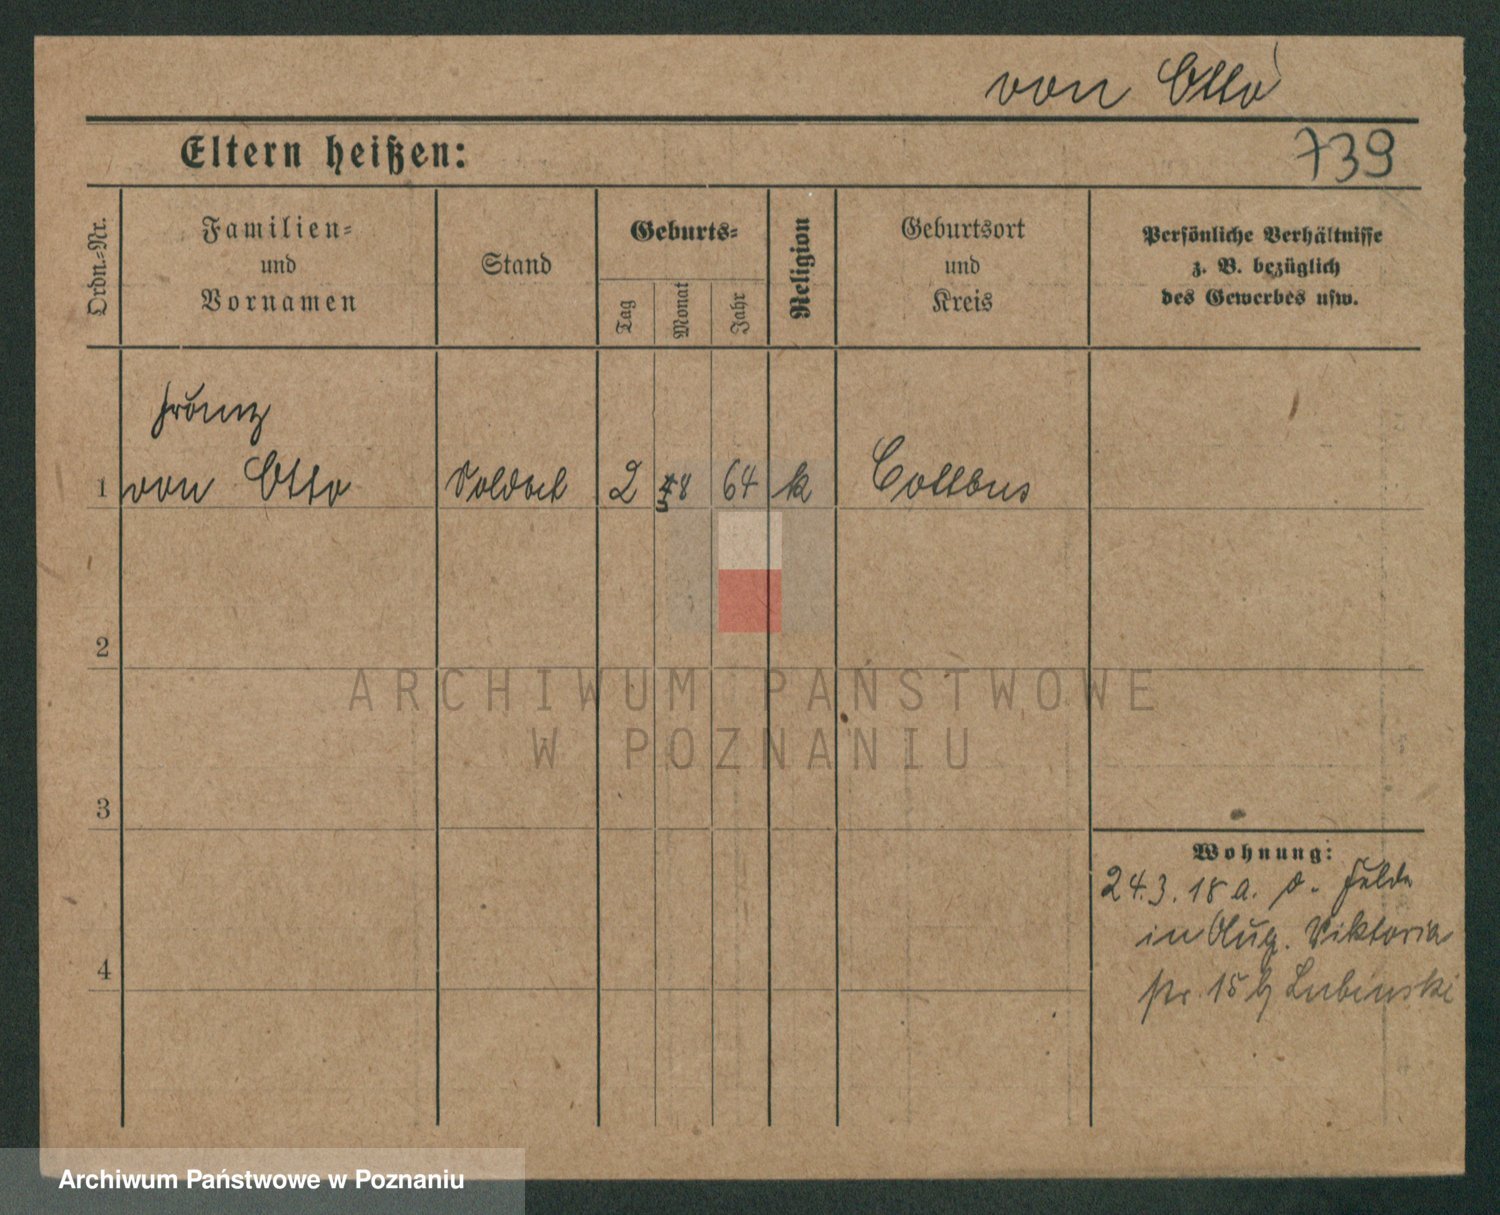 von Otto
Eltern heißen:
739
Ordn.-Nr.
Familien-
und
Vornamen
Stand
Geburts-
Tag
Monat
Jahr
Religion
Geburtsort
und
Kreis
Persönliche Verhältnisse
z. B. bezüglich
des Gewerbes usw.
Franz
1 von Otto Soldat 2 8 64 k Cottbus
2
3
4
Wohnung:
24.3.18 a. d. Felde
in Aug. Viktoria
str. 15 b/ Lubinski
ARCHIWUM PAŃSTWOWE
W POZNANIU
Archiwum Państwowe w Poznaniu